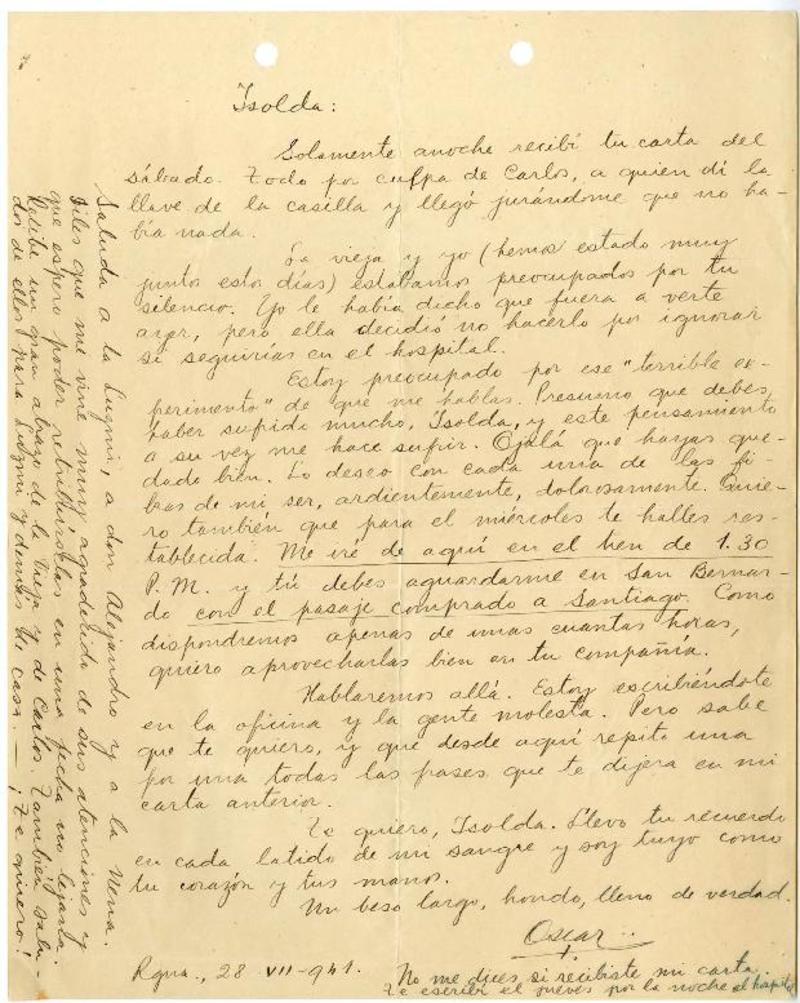 Isolda:
Solamente anoche recibí tu carta del
sábado. Todo por culpa de Carlos, a quien dí la
llave de la casilla y llegó jurándome que no ha-
bía nada.
La vieja y yo (hemos estado muy
juntos estos días) estábamos preocupados por tu
silencio. Yo le había dicho que fuera a verte
ayer, pero ella decidió no hacerlo por ignorar
si seguirías en el hospital.
Estoy preocupado por ese "terrible ex-
perimento" de que me hablas. Presumo que debes
haber sufrido mucho, Isolda, y este pensamiento
a su vez me hace sufrir. Ojalá que hayas que-
dado bien. Lo deseo con cada una de las fi-
bras de mi ser, ardientemente, dolorosamente. Quie-
ro también que para el miércoles te halles res-
tablecida. Me iré de aquí en el tren de 1.30
P.M. y tú debes aguardarme en San Bernar-
do con el pasaje comprado a Santiago. Como
dispondremos apenas de unas cuantas horas,
quiero aprovecharlas bien en tu compañía.
Hablaremos allá. Estoy escribiéndote
en la oficina y la gente molesta. Pero sabe
que te quiero, y que desde aquí repito una
por una todas las frases que te dijera en mi
carta anterior.
Te quiero, Isolda. Llevo tu recuerdo
en cada latido de mi sangre y soy tuyo como
tu corazón y tus manos.
Un beso largo, hondo, lleno de verdad.
Oscar
Rgua., 28 VII-941.
No me dices si recibiste mi carta.
Te escribí el jueves por la noche al hospital
Saluda a la Luzmi, a don Alejandro y a la Nena.
Diles que me vine muy agradecido de sus atenciones y
que espero poder retribuírselas en una fecha no lejana.
Recibe un gran abrazo de la Vieja y de Carlos. También salu-
dos de ellos para Luzmi y demás de casa. — ¡Te quiero!